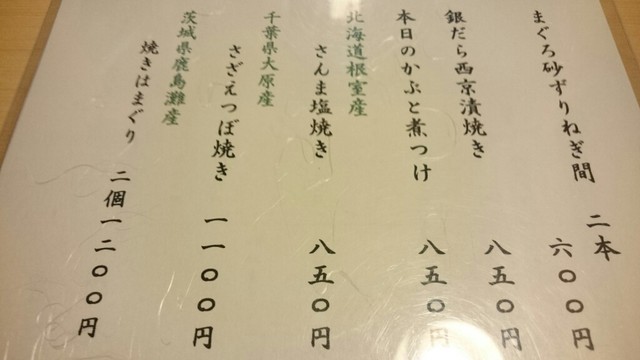 まぐろ砂ずりねぎ間 二本 六〇〇円
銀だら西京漬焼き 八五〇円
本日のかぶと煮つけ 八五〇円
北海道根室産
さんま塩焼き 八五〇円
千葉県大原産
さざえつぼ焼き 一一〇〇円
茨城県鹿島灘産
焼きはまぐり 二個一二〇〇円